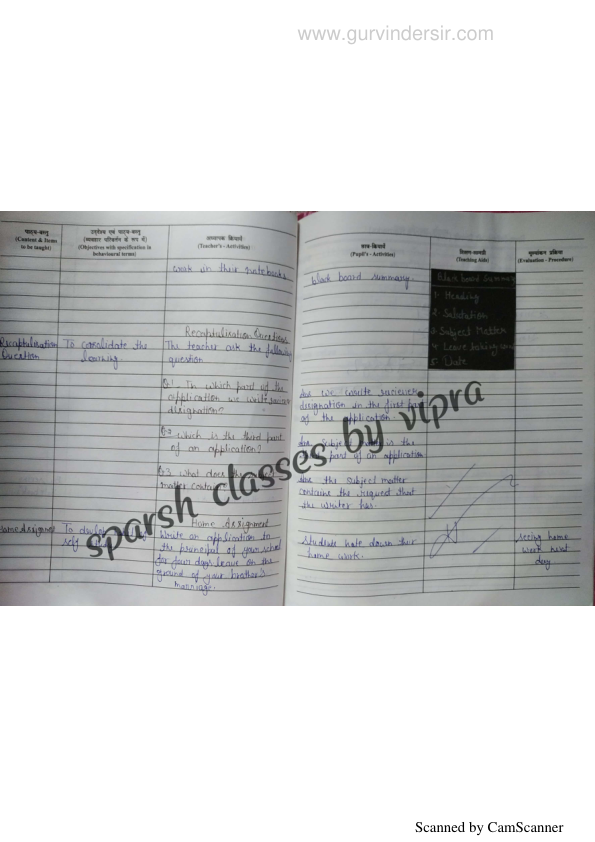 www.gurvindersir.com
पाठ्य-वस्तु
(Content & Items
to be taught)
उद्देश्य एवं पाठ्य-वस्तु
(व्यवहार परिवर्तन के रूप में)
(Objectives with specification in
behavioural terms)
अध्यापक क्रियायें
(Teacher's - Activities)
work in their notebooks
Recaptulisation Questions
Recaptulisation
Question
To consolidate the
learning
The teacher ask the following
question
Q.1 In which part of the
application we write
designation?
Q.2 which is the third part
of an application?
Q.3 what does the
matter
Home Assignment
To
self
Write an application to
the principal of your school
for four days leave on the
ground of your brother's
marriage.
छात्र-क्रियायें
(Pupil's - Activities)
शिक्षण-सामग्री
(Teaching Aids)
मूल्यांकन प्रक्रिया
(Evaluation - Procedure)
black board summary.
Black board Summary
1. Heading
2. Salutation
3 Subject Matter
4 Leave taking
5. Date
Ans we write
designation in the first part
of the application.
Ans is the
part of an application
Ans the subject matter
contains the request that
the writer has.
Students note down their
home work.
seeing home
work next
day
sparsh classes by vipra
Scanned by CamScanner